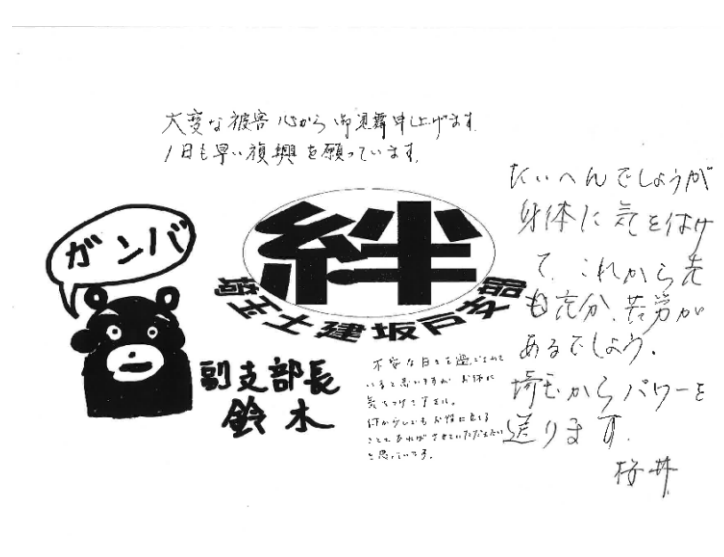 大変な被害心から御見舞申上げます
1日も早い復興を願っています。
ガンバ
絆
埼玉土建坂戸支部
副支部長
鈴木
不安な日々を過ごされて
いると思いますが お体に
気をつけて下さい。
何か少しでもお役に立てる
ことがあればさせていただきたい
と思っています。
たいへんでしょうが
身体に気を付け
て、これから先
も充分、苦労が
あるでしょう。
埼玉からパワーを
送ります。
桜井